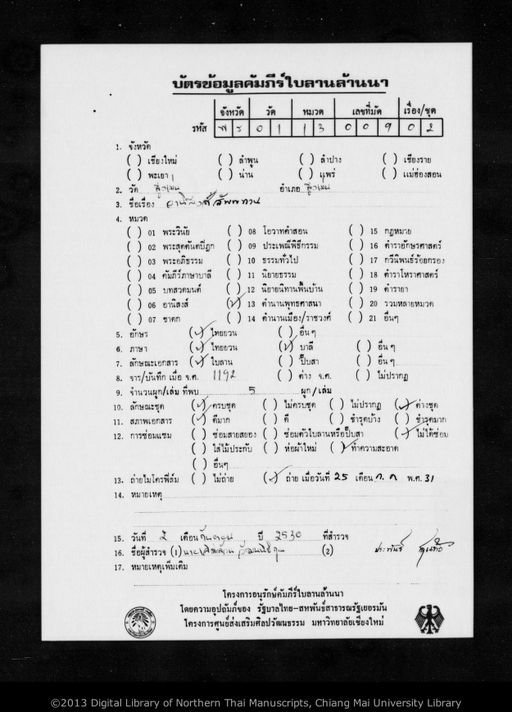 บัตรข้อมูลคัมภีร์ใบลานล้านนา
จังหวัด วัด หมวด เลขที่มัด เรื่อง/ชุด
รหัส พร 0 1 1 3 0 0 9 0 2
1. จังหวัด
( ) เชียงใหม่ ( ) ลำพูน ( ) ลำปาง ( ) เชียงราย
( ) พะเยา ( ) น่าน ( ) แพร่ ( ) แม่ฮ่องสอน
2. วัด สูงเม่น อำเภอ สูงเม่น
3. ชื่อเรื่อง
4. หมวด
( ) 01 พระวินัย ( ) 08 โอวาทคำสอน ( ) 15 กฎหมาย
( ) 02 พระสุตตันตปิฎก ( ) 09 ประเพณีพิธีกรรม ( ) 16 ตำราอักษรศาสตร์
( ) 03 พระอภิธรรม ( ) 10 ธรรมทั่วไป ( ) 17 กวีนิพนธ์ร้อยกรอง
( ) 04 คัมภีร์ภาษาบาลี ( ) 11 นิยายธรรม ( ) 18 ตำราโหราศาสตร์
( ) 05 บทสวดมนต์ ( ) 12 นิยายนิทานพื้นบ้าน ( ) 19 ตำรายา
( ) 06 อานิสงส์ (✓) 13 ตำนานพุทธศาสนา ( ) 20 รวมหลายหมวด
( ) 07 ชาดก ( ) 14 ตำนานเมือง/ราชวงศ์ ( ) 21 อื่นๆ
5. อักษร (✓) ไทยยวน ( ) อื่นๆ
6. ภาษา (✓) ไทยยวน (✓) บาลี ( ) อื่นๆ
7. ลักษณะเอกสาร (✓) ใบลาน ( ) ปั๊บสา ( ) อื่นๆ
8. จาร/บันทึก เมื่อ จ.ศ. 1192 ( ) ค่าว จ.ศ. ( ) ไม่ปรากฏ
9. จำนวนผูก/เล่ม ที่พบ 5 ผูก/เล่ม
10. ลักษณะชุด (✓) ครบชุด ( ) ไม่ครบชุด ( ) ไม่ปรากฏ (✓) ต่างชุด
11. สภาพเอกสาร (✓) ดีมาก ( ) ดี ( ) ชำรุดบ้าง ( ) ชำรุดมาก
12. การซ่อมแซม ( ) ซ่อมสายสยอง ( ) ซ่อมตัวใบลานหรือปั๊บสา (✓) ไม่ได้ซ่อม
( ) ใส่ไม้ประกับ ( ) ห่อผ้าใหม่ (✓) ทำความสะอาด
( ) อื่นๆ
13. ถ่ายไมโครฟิล์ม ( ) ไม่ถ่าย (✓) ถ่าย เมื่อวันที่ 25 เดือน ก.ค พ.ศ. 31
14. หมายเหตุ
15. วันที่ 2 เดือน กันยายน ปี 2530 ที่สำรวจ
16. ชื่อผู้สำรวจ (1) (2)
17. หมายเหตุเพิ่มเติม
โครงการอนุรักษ์คัมภีร์ใบลานล้านนา
โดยความอุปถัมภ์ของ รัฐบาลไทย-สหพันธ์สาธารณรัฐเยอรมัน
โครงการศูนย์ส่งเสริมศิลปวัฒนธรรม มหาวิทยาลัยเชียงใหม่
©2013 Digital Library of Northern Thai Manuscripts, Chiang Mai University Library